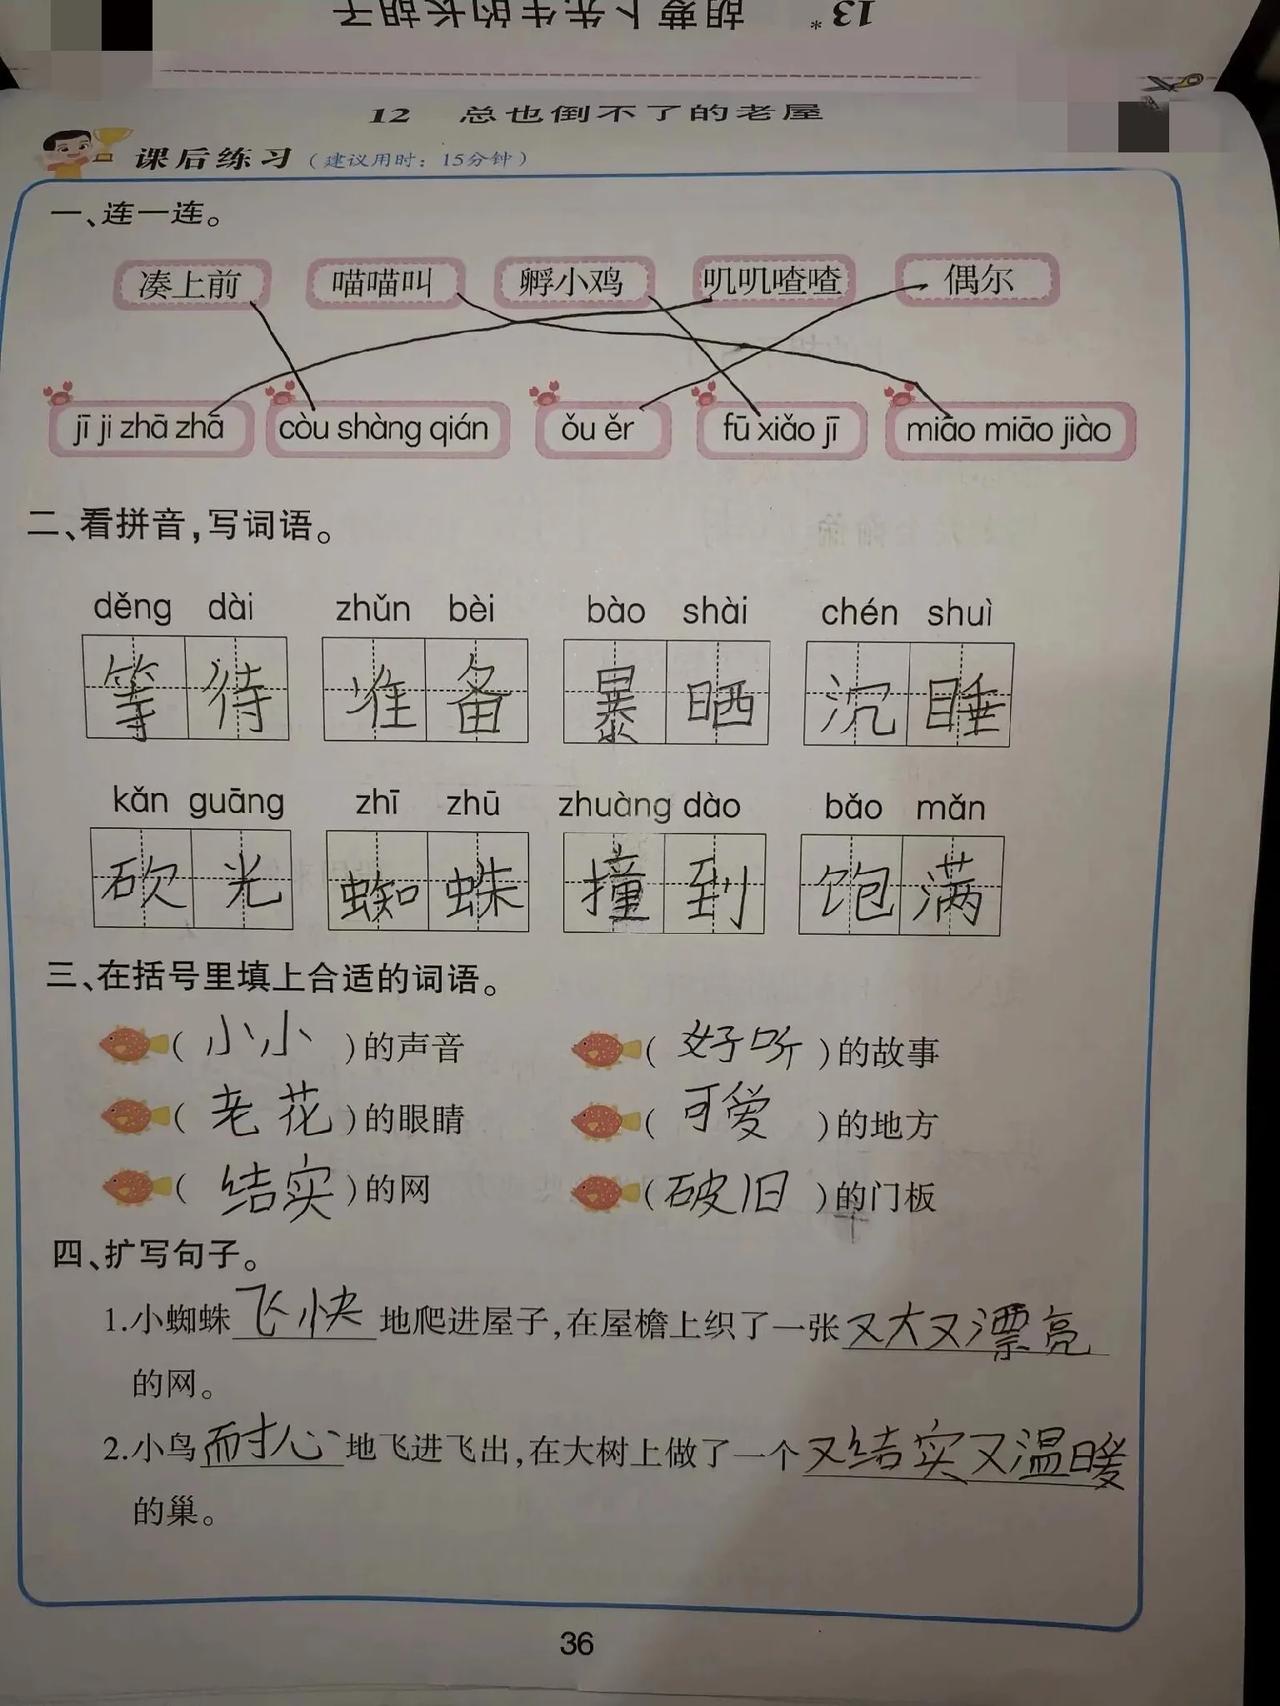 13* 胡萝卜先生的长胡子
12 总也倒不了的老屋
课后练习（建议用时：15分钟）
一、连一连。
凑上前 喵喵叫 孵小鸡 叽叽喳喳 偶尔
jī ji zhā zhā còu shàng qián ǒu ěr fū xiǎo jī miāo miāo jiào
二、看拼音，写词语。
děng dài zhǔn bèi bào shài chén shuì
等待 准备 暴晒 沉睡
kǎn guāng zhī zhū zhuàng dào bǎo mǎn
砍光 蜘蛛 撞到 饱满
三、在括号里填上合适的词语。
（小小）的声音 （好听）的故事
（老花）的眼睛 （可爱）的地方
（结实）的网 （破旧）的门板
四、扩写句子。
1.小蜘蛛飞快地爬进屋子，在屋檐上织了一张又大又漂亮
的网。
2.小鸟耐心地飞进飞出，在大树上做了一个又结实又温暖
的巢。
36